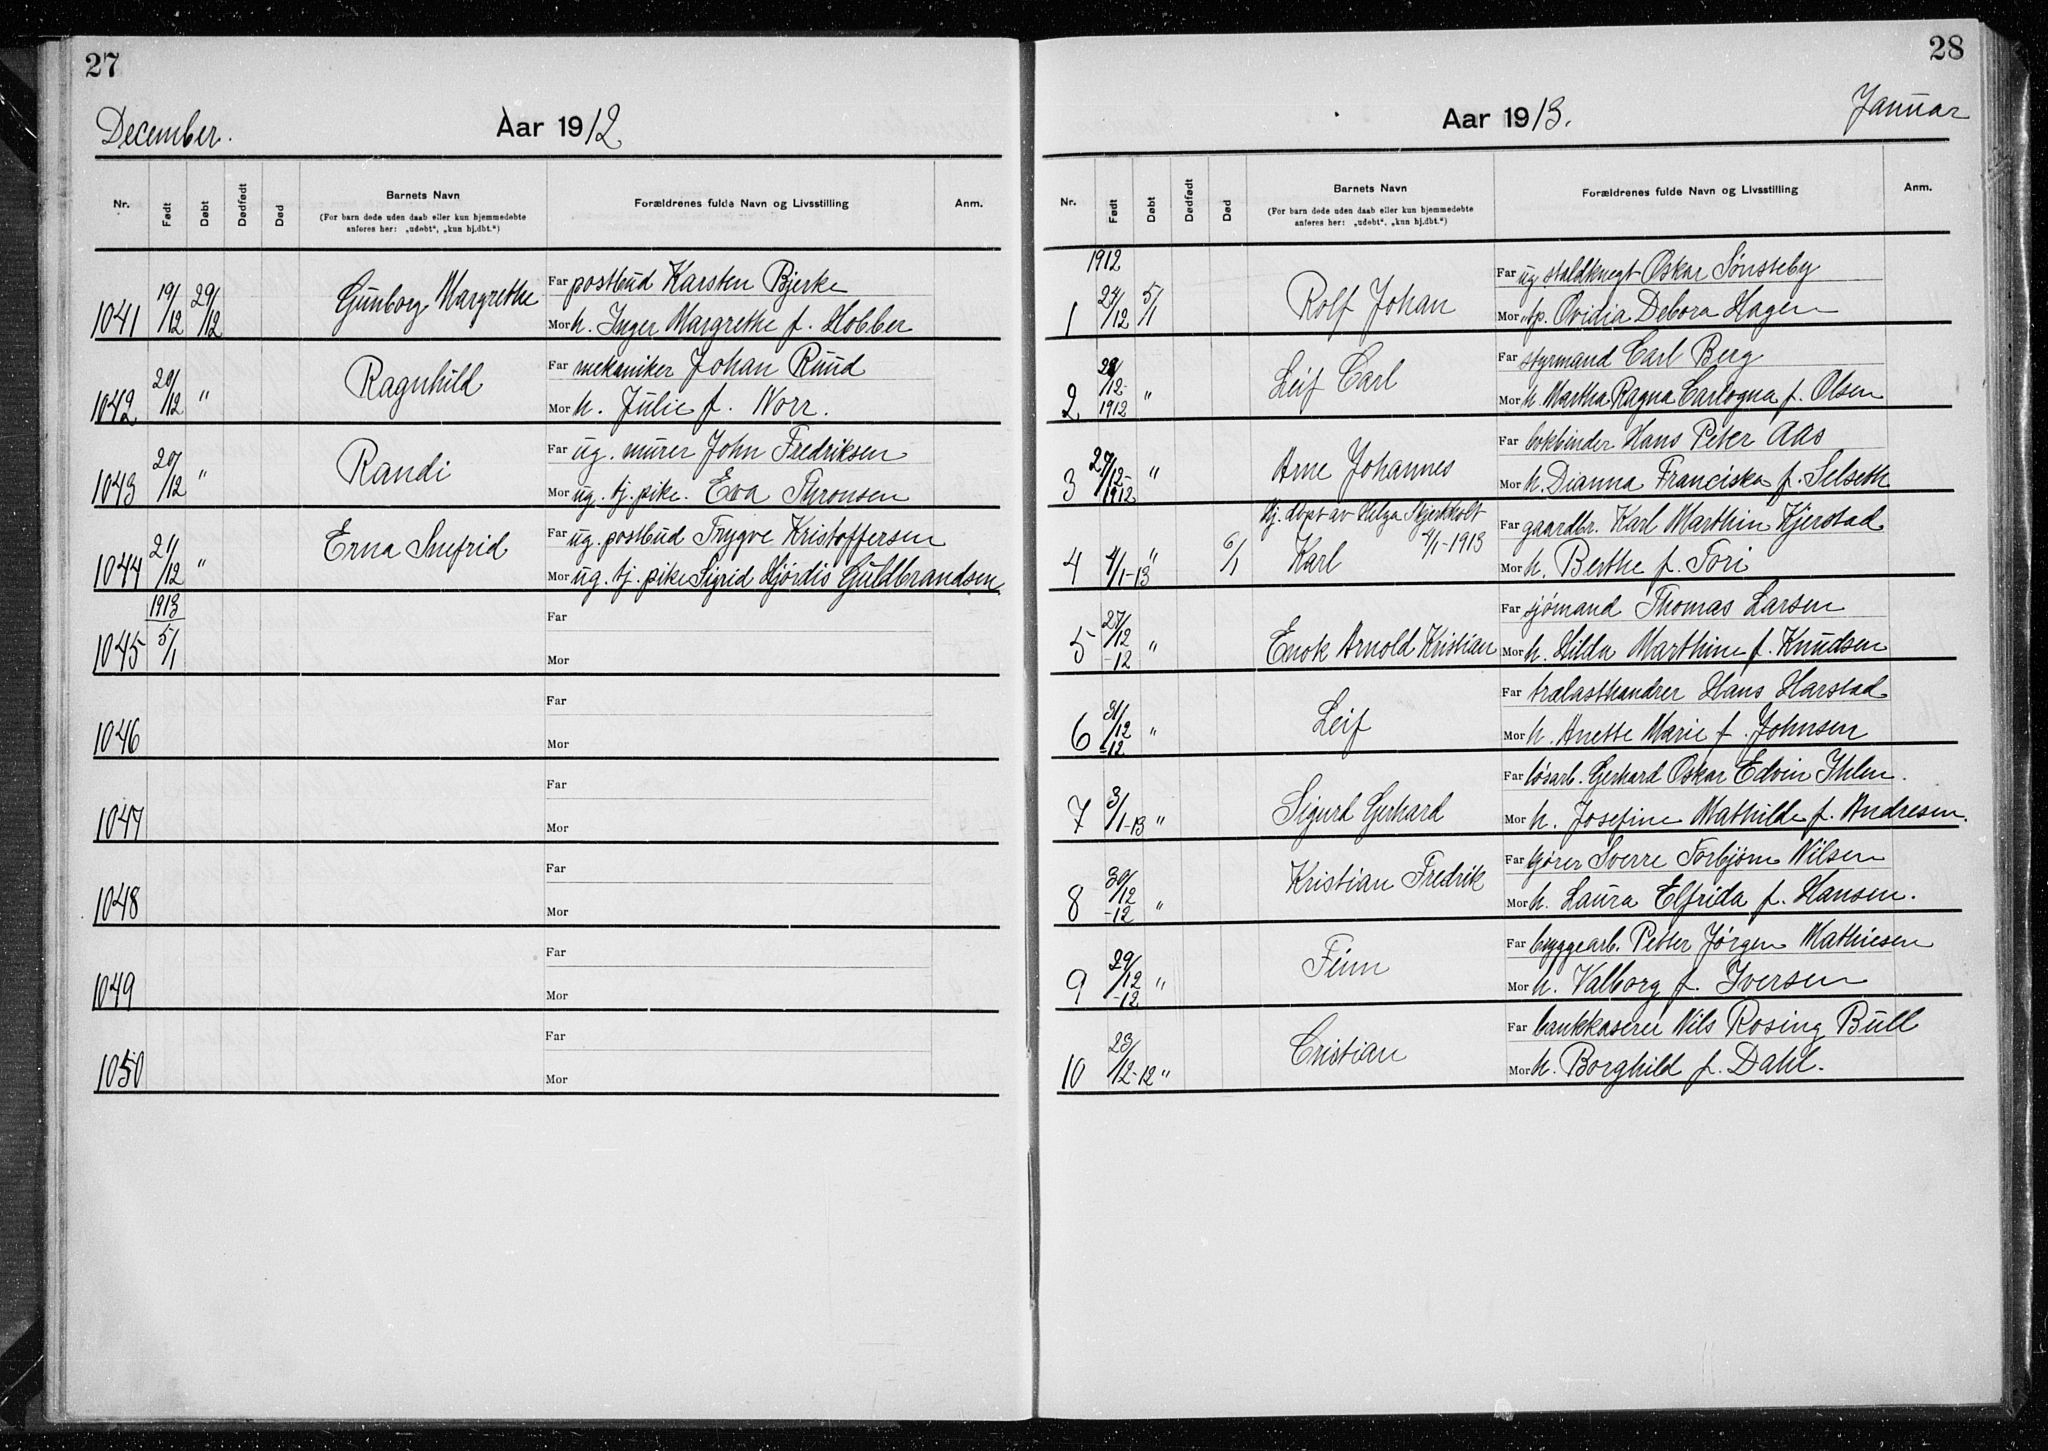 27
December.
Aar 1912
Nr.
Født
Døbt
Dødfødt
Død
Barnets Navn
(For barn døde uden daab eller kun hjemmedøbte
anføres her: „udøbt“, „kun hj.dbt.“)
Forældrenes fulde Navn og Livsstilling
Anm.
1041 19/12 29/12 Gunborg Margrethe
Far postbud Karsten Bjerke
Mor h. Inger Margrethe f. Hobber
1042 20/12 " Ragnhild
Far mekaniker Johan Ruud
Mor h. Julie f. Norr.
1043 20/12 " Randi
Far ug. murer John Fredriksen
Mor ug. tj. pike. Eva Thronsen
1044 21/12 " Erna Snefrid
Far ug. postbud Trygve Kristoffersen
Mor ug. tj. pike Sigrid Hjørdis Guldbrandsen
1913
1045 5/1
Far
Mor
1046
Far
Mor
1047
Far
Mor
1048
Far
Mor
1049
Far
Mor
1050
Far
Mor
28
Januar
Aar 1913.
Nr.
Født
Døbt
Dødfødt
Død
Barnets Navn
(For barn døde uden daab eller kun hjemmedøbte
anføres her: „udøbt“, „kun hj.dbt.“)
Forældrenes fulde Navn og Livsstilling
Anm.
1912
1 24/12 5/1 Rolf Johan
Far ug staldknegt Oskar Sønsteby
Mor Ovidia Debora Hagen
2 /12-1912 " Leif Carl
Far styrmand Carl Berg
Mor h. Martha Ragna Carlogna f. Olsen
3 27/12-1912 " Arne Johannes
Far bokbinder Hans Peter Aas
Mor h. Dianna Franciska f. Selseth
Hj. døpt av Helga Skjerkholt
4/1-1913
4 4/1-13 " 6/1 Karl
Far gaardbr. Karl Marthin Kjerstad
Mor h. Berthe f. Tori
5 27/12-12 " Enok Arnold Kristian
Far sjømand Thomas Larsen
Mor h. Hilda Marthine f. Knudsen
6 31/12-12 " Leif
Far trælasthandrer Hans Harstad
Mor h. Anette Marie f. Johnsen
7 3/1-13 " Sigurd Gerhard
Far løsarb. Gerhard Oskar Edvin Ihlen.
Mor h. Josefine Mathilde f. Andresen.
8 30/12-12 " Kristian Fredrik
Far kjører Sverre Torbjørn Nilsen
Mor h. Laura Elfrida f. Hansen.
9 29/12-12 " Finn
Far byggearb. Petter Jørgen Mathiesen
Mor h. Valborg f. Iversen
10 23/12-12 " Cristian
Far bankkaserer Nils Rosing Bull
Mor h. Borghild f. Dahl.